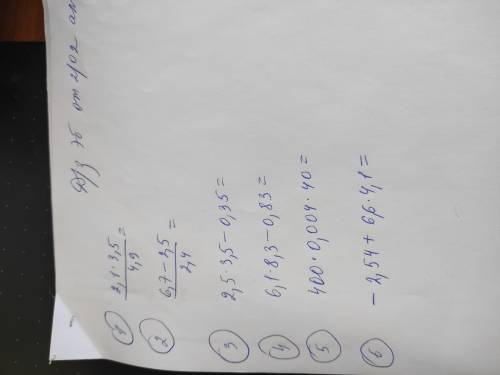 Д/з 7б от 21/02 ал
① 2,1 · 3,5 / 4,9 =
② 6,7 − 2,5 / 2,4 =
③ 2,5 · 3,5 − 0,35 =
④ 6,1 · 8,3 − 0,83 =
⑤ 400 · 0,004 · 40 =
⑥ − 2,54 + 6,6 · 4,1 =